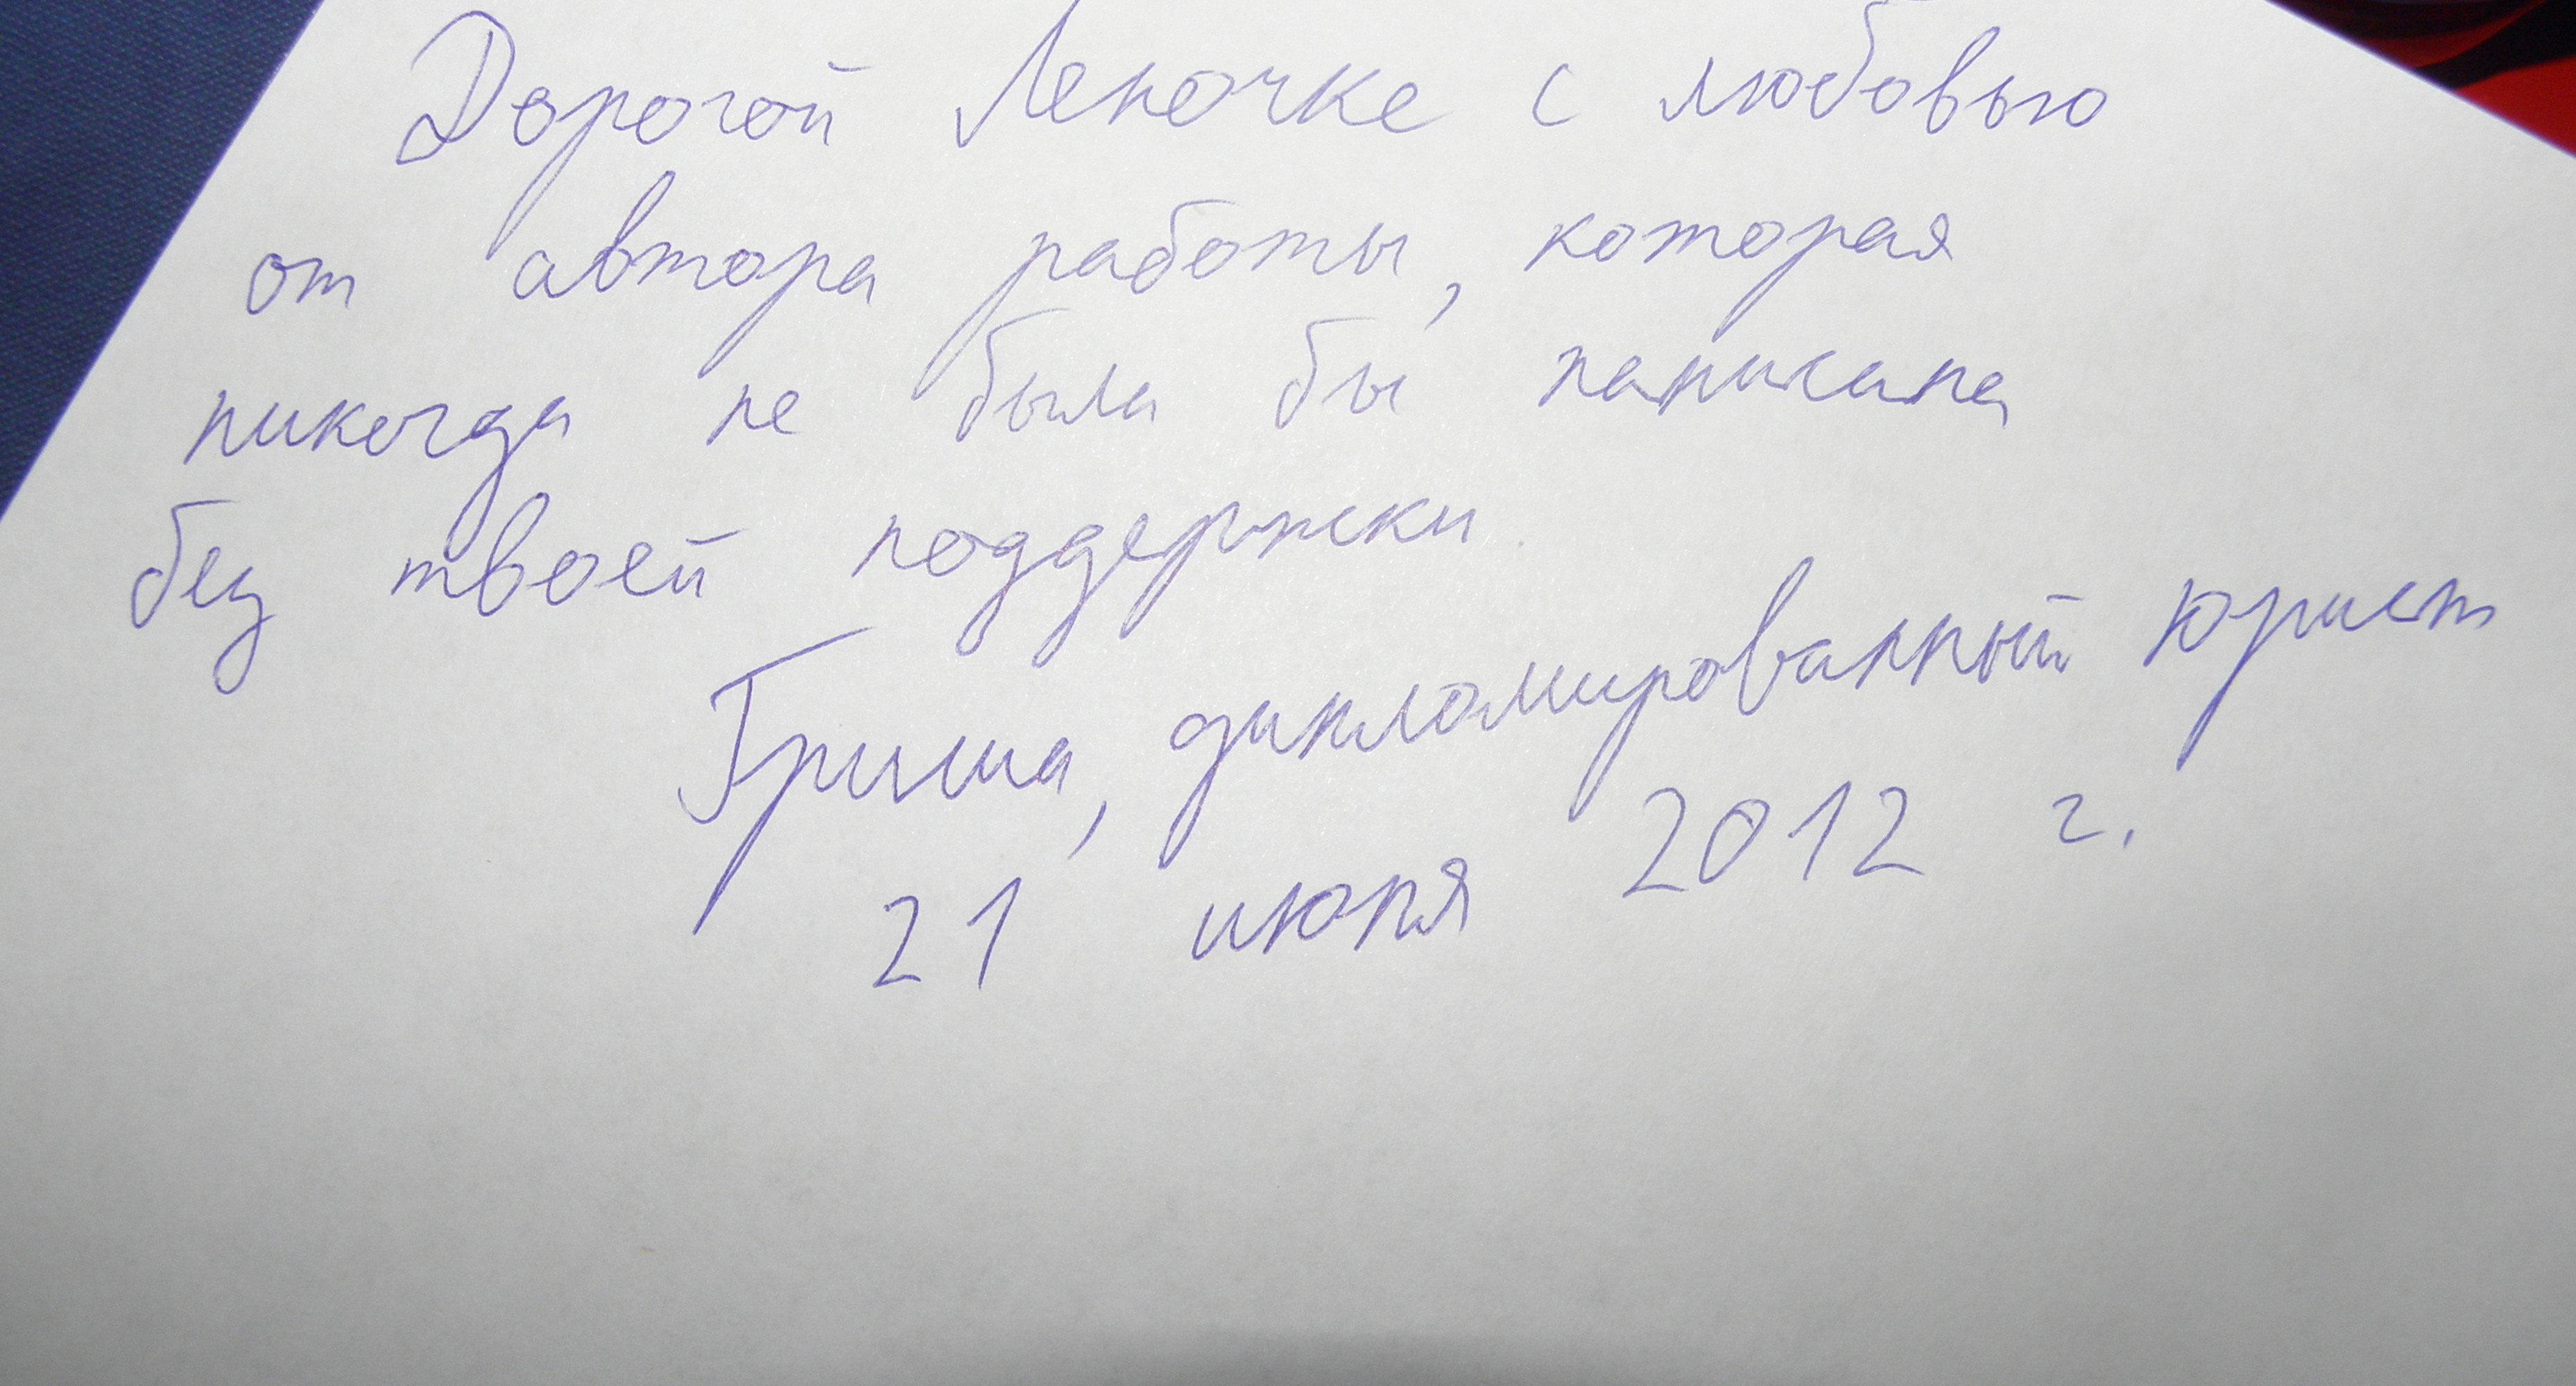 Дорогой Леночке с любовью
от автора работы, которая
никогда не была бы написана
без твоей поддержки.
Гриша, дипломированный юрист
21 июня 2012 г.